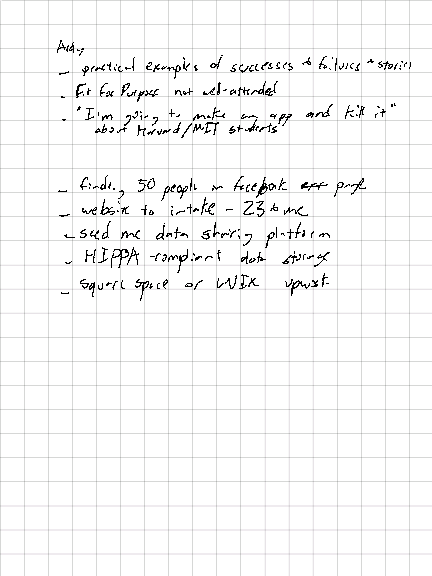 - practical examples of successes & failures + stories
- Fit for Purpose not well-attended
- "I'm going to make an app and kill it"
about Harvard/MIT students
- finding 50 people on facebook
- website to intake - 23 & me
- seed me data sharing platform
- HIPPA-compliant data storage
- square space or WIX upwork